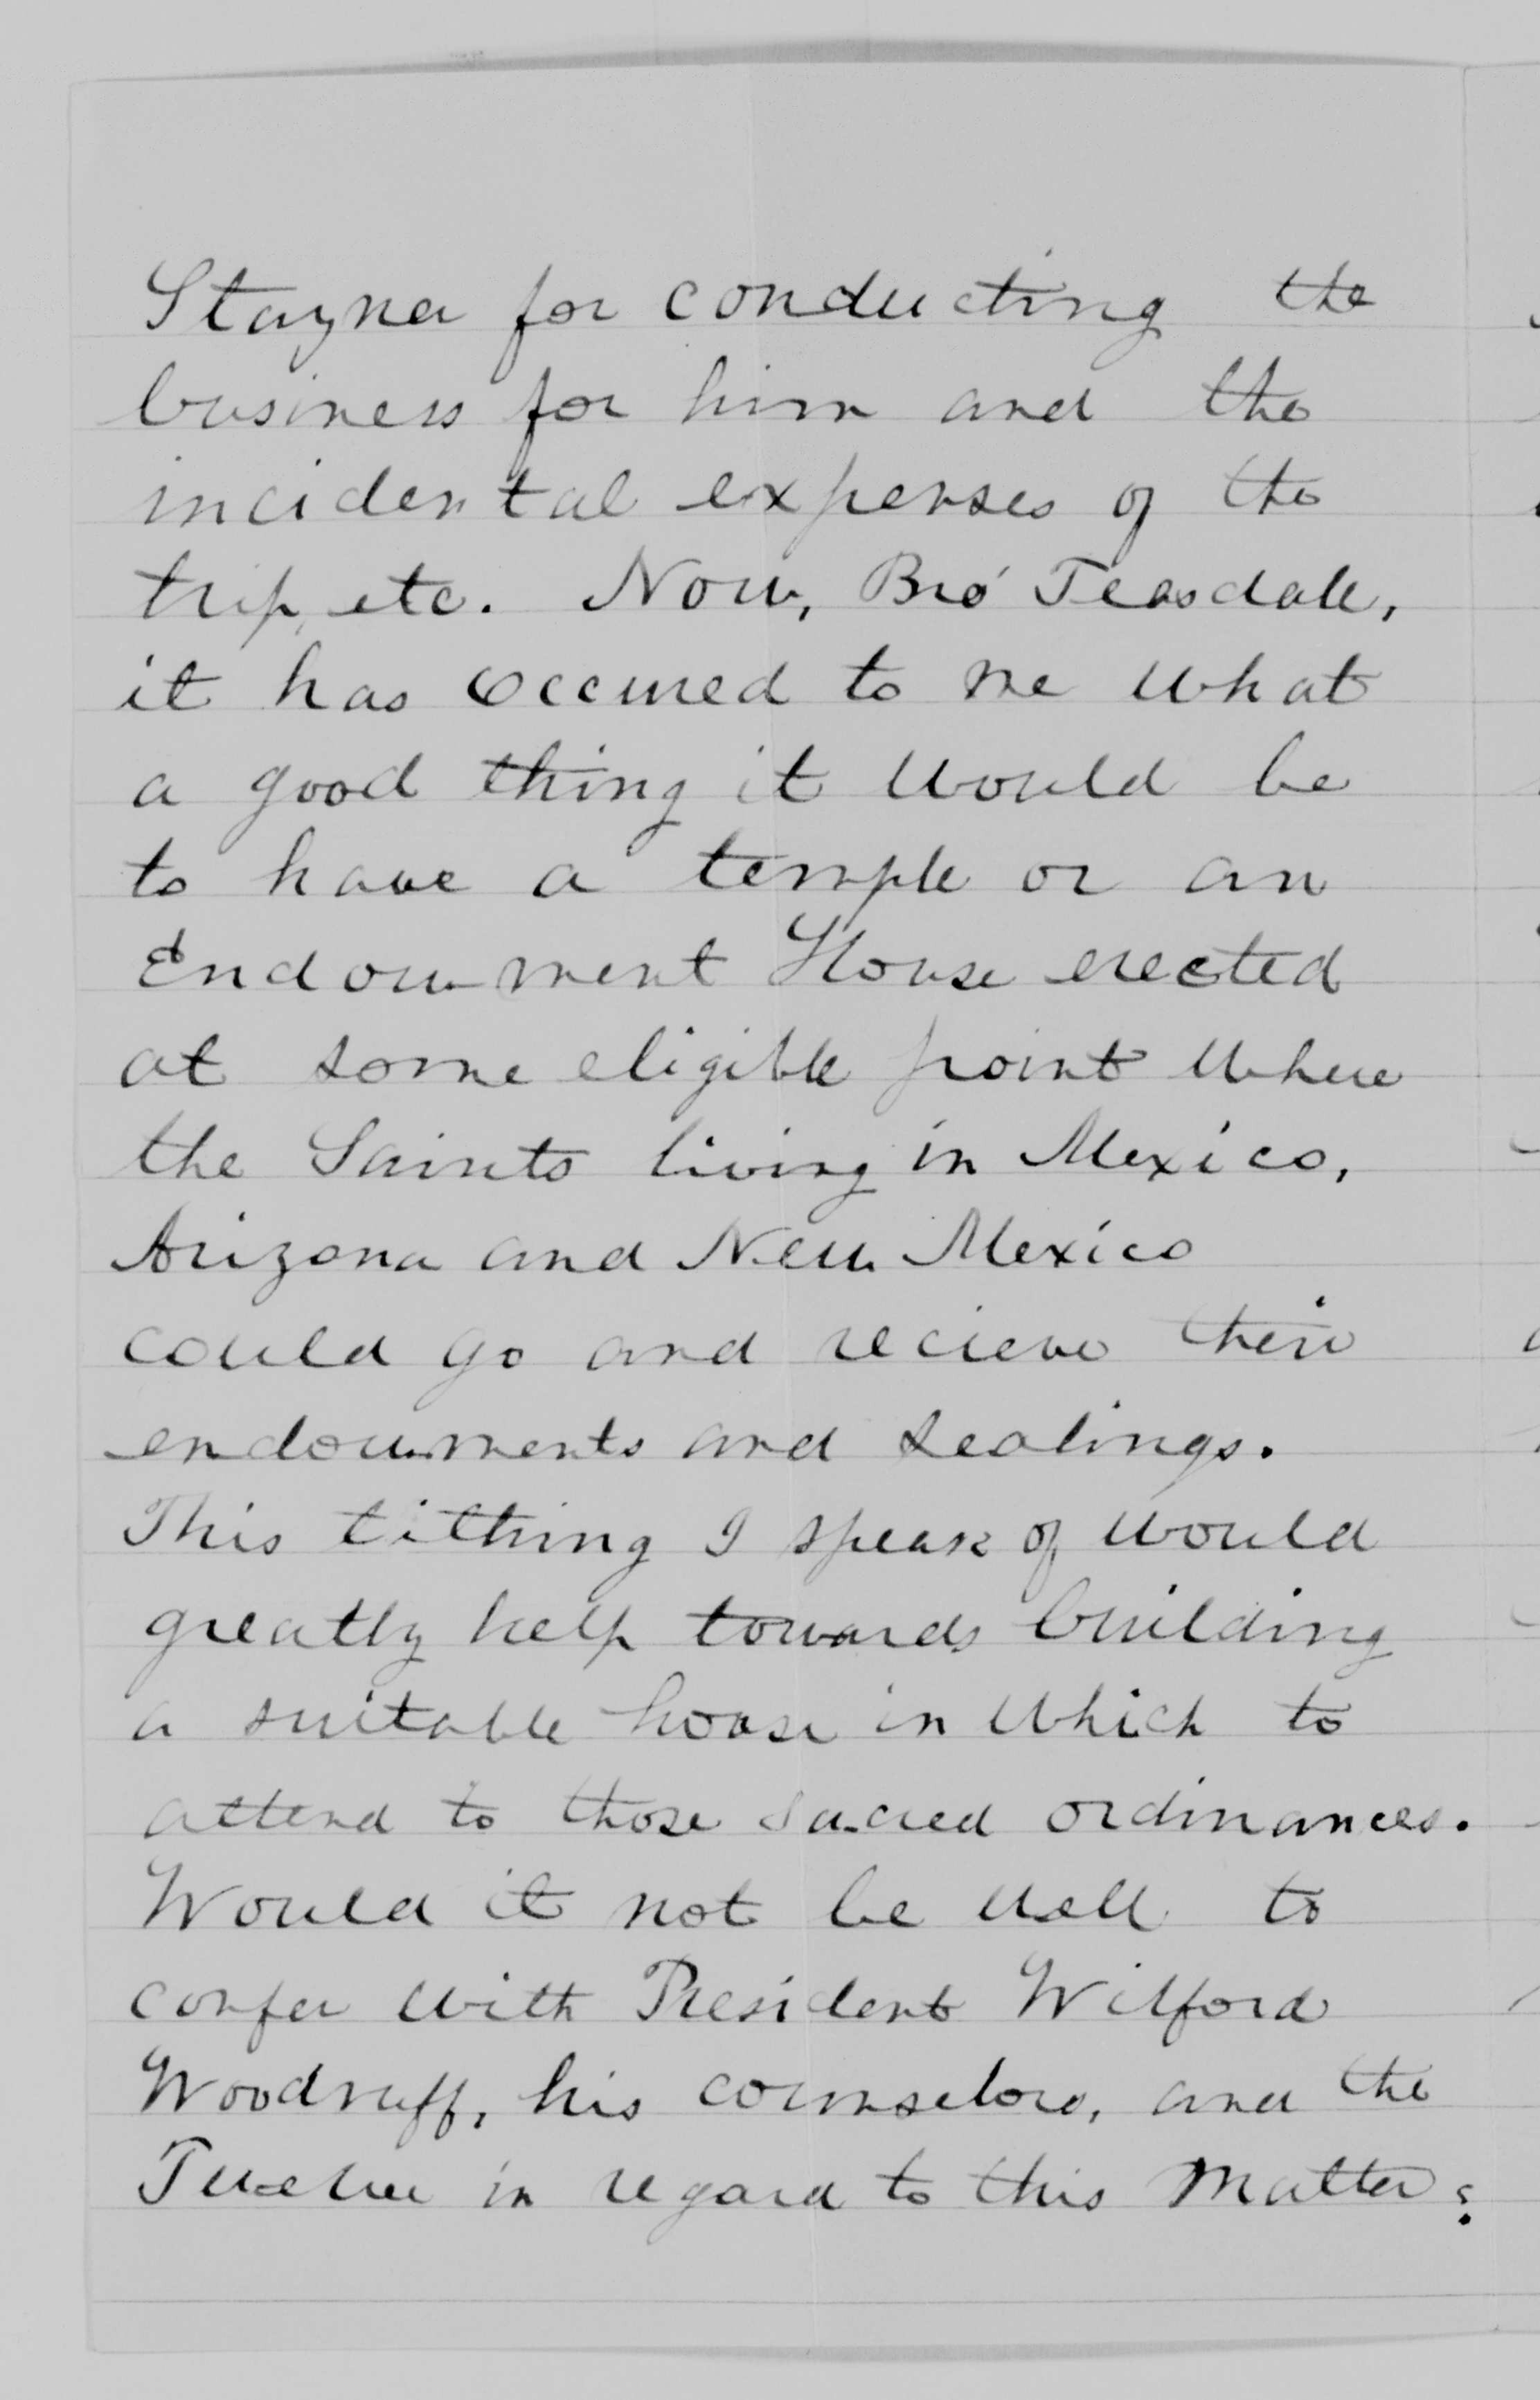 Stayner for conducting the
business for him and the
incidental expenses of the
trip, etc. Now, Bro' Teasdale,
it has occured to me what
a good thing it would be
to have a temple or an
Endowment House erected
at some eligible point where
the Saints living in Mexico,
Arizona and New Mexico
could go and recieve their
endowments and sealings.
This tithing I speak of would
greatly help towards building
a suitable house in which to
attend to those sacred ordinances.
Would it not be well to
confer with President Wilford
Woodruff, his counselors, and the
Twelve in regard to this matter?